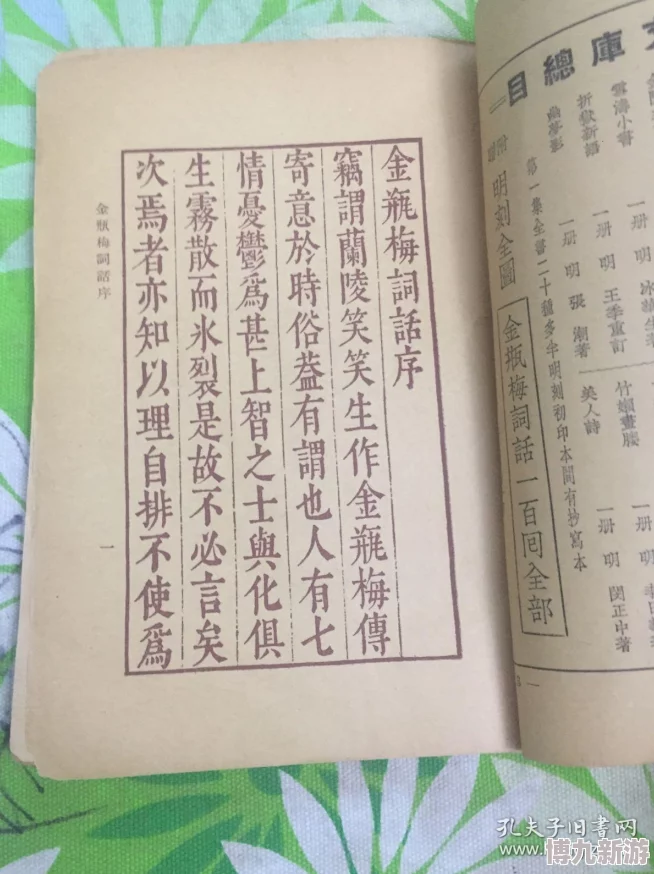 文庫總目
雲濤小書
折獄新語 一册 明 王季重訂
幽夢影 一册 明 張潮著
明刻全圖
第一集全書二十種多半明刻初印本間有抄寫本
金瓶梅詞話一百回全部
竹嬾畫媵
美人詩 一册 明 閔正中著
一册 明
金瓶梅詞話序
竊謂蘭陵笑笑生作金瓶梅傳
寄意於時俗葢有謂也人有七
情憂鬱爲甚上智之士與化俱
生霧散而氷裂是故不必言矣
次焉者亦知以理自排不使爲
金瓶梅詞話序
一
孔夫子旧書网
博九新游